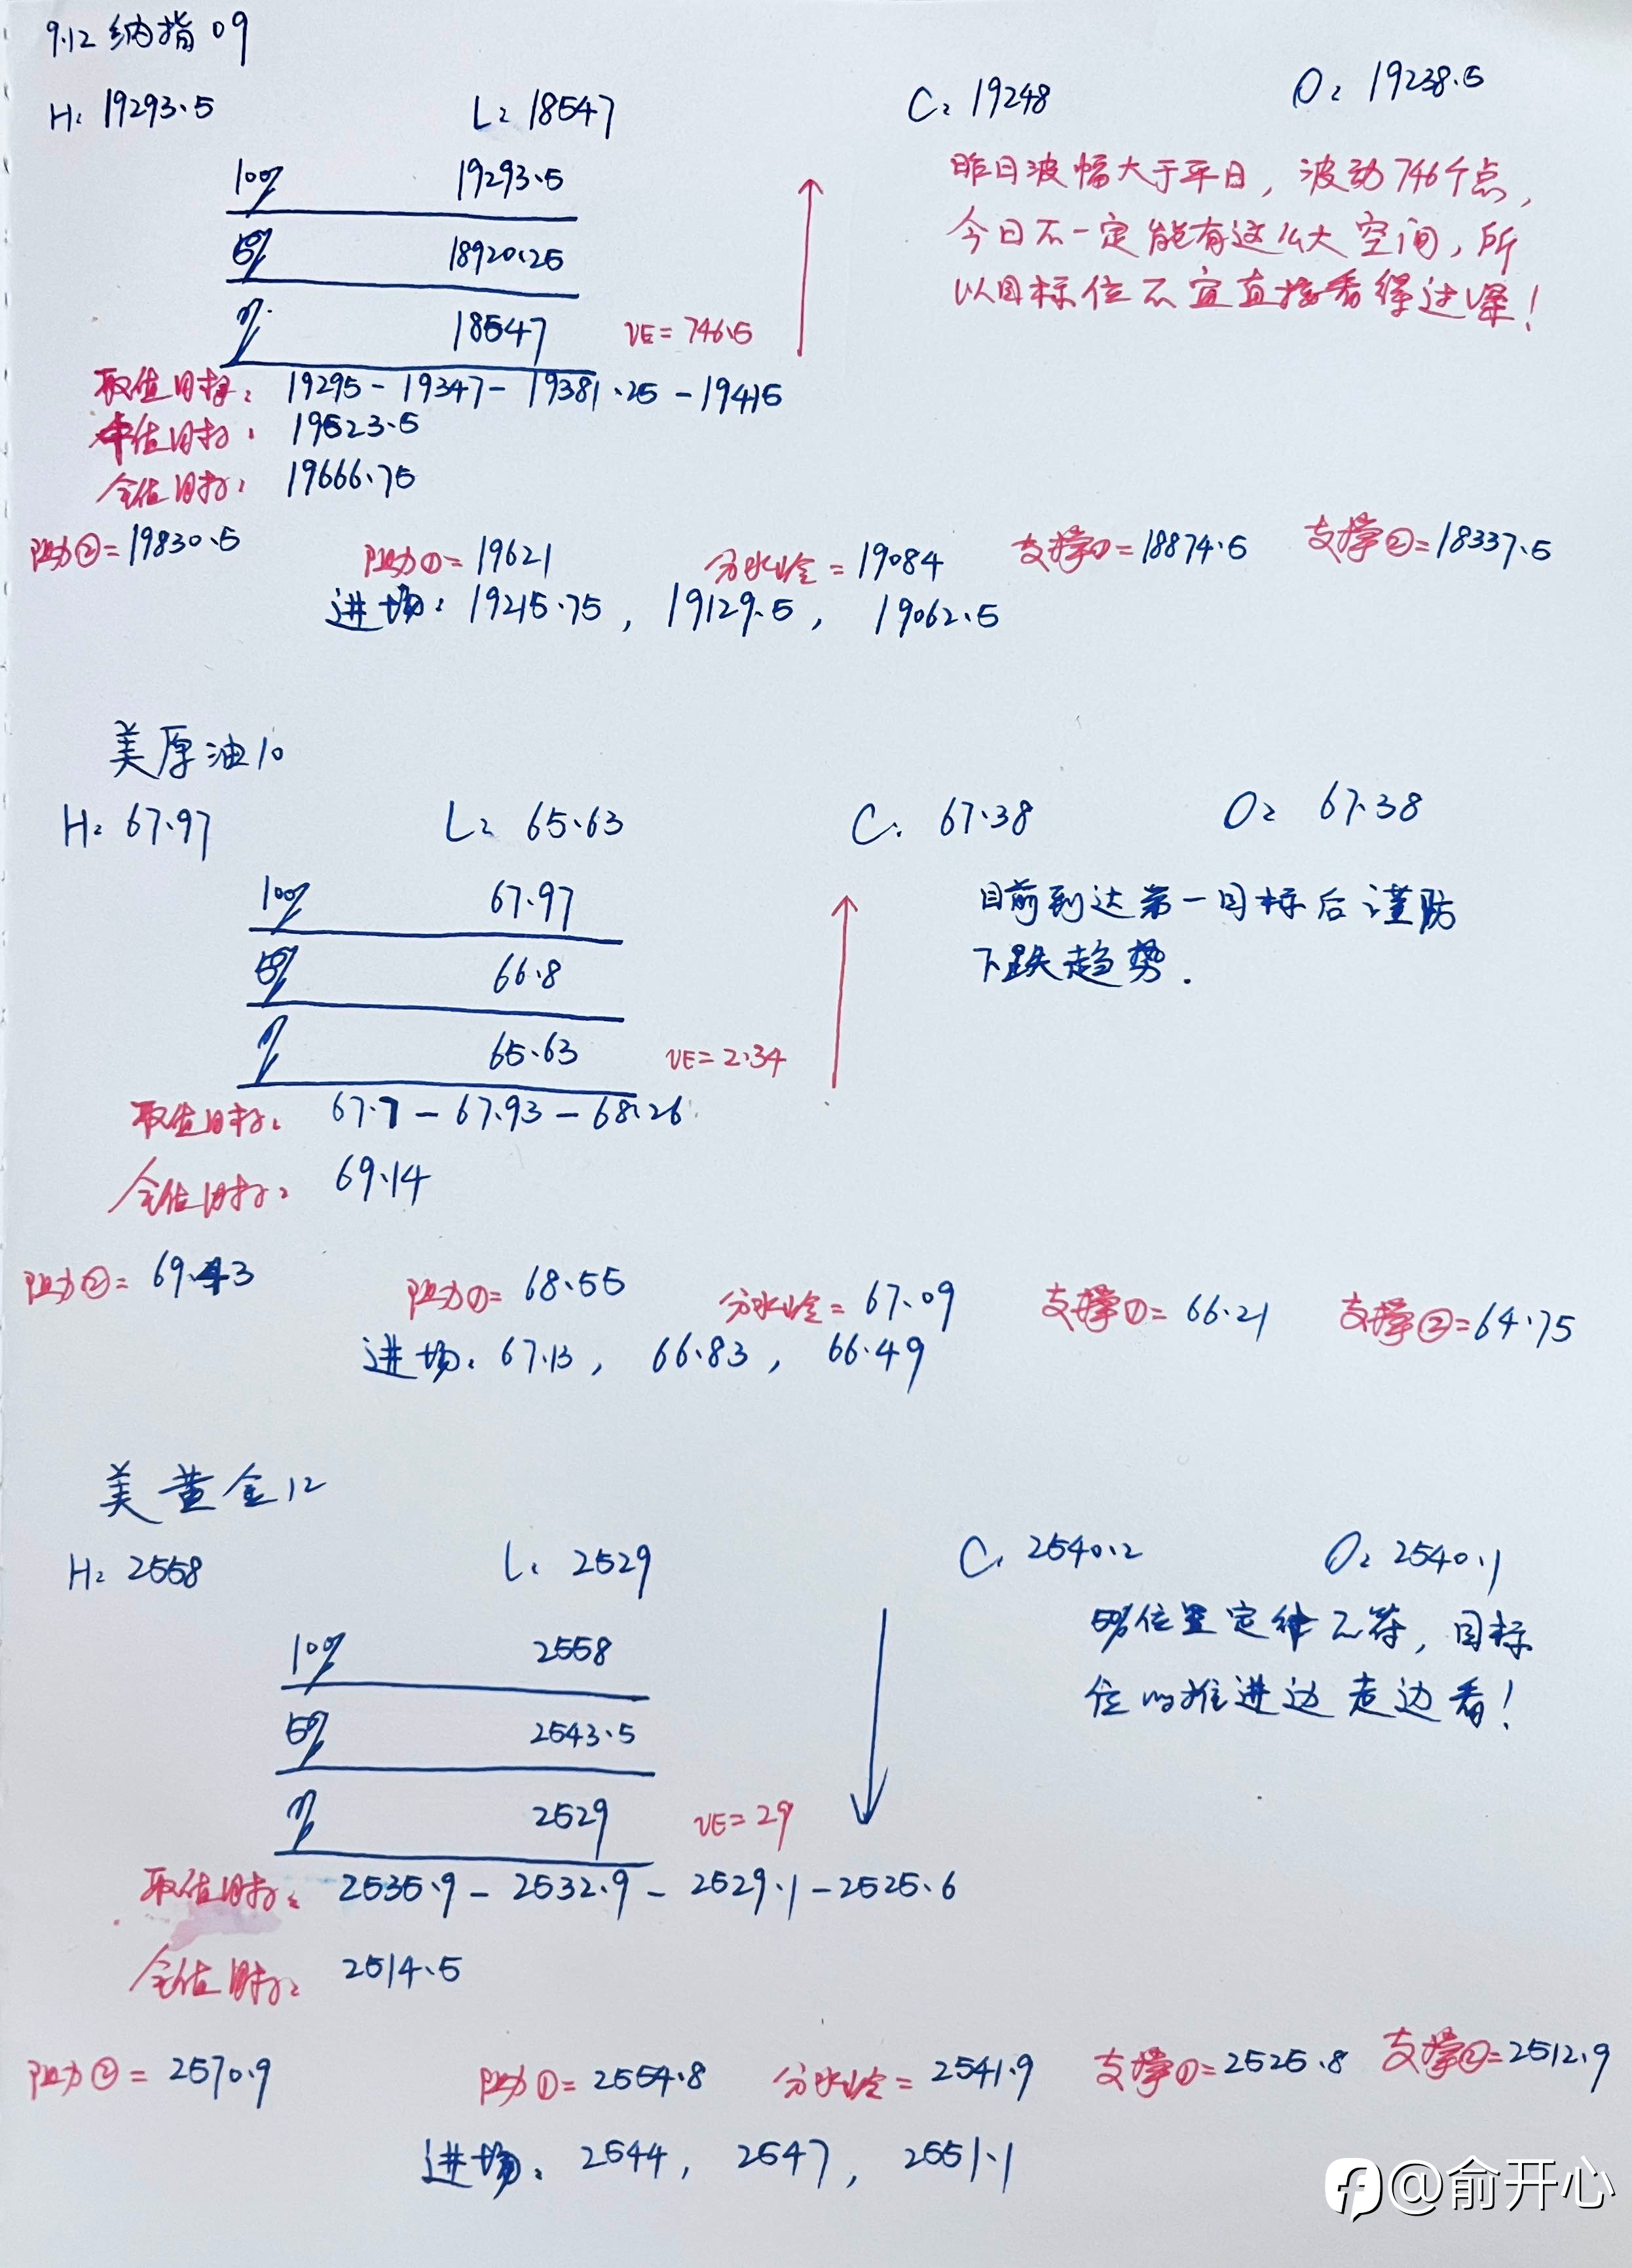 9.12 纳指09
H: 19293.5 L: 18547 C: 19248 O: 19238.5
100% 19293.5
50% 18920.25
0% 18547 VE=746.5
昨日波幅大于平日，波动746个点，
今日不一定能有这么大空间，所
以目标位不宜直接看得过深！
取值目标：19295-19347-19381.25-19415
半值目标：19523.5
全值目标：19666.75
阻力②=19830.5 阻力①=19621 分水岭=19084 支撑①=18874.5 支撑②=18337.5
进场：19215.75，19129.5，19062.5
美原油10
H: 67.97 L: 65.63 C: 67.38 O: 67.38
100% 67.97
50% 66.8
0% 65.63 VE=2.34
目前到达第一目标后谨防
下跌趋势.
取值目标：67.7-67.93-68.26
全值目标：69.14
阻力②=69.43 阻力①=68.55 分水岭=67.09 支撑①=66.21 支撑②=64.75
进场：67.13，66.83，66.49
美黄金12
H: 2558 L: 2529 C: 2540.2 O: 2540.1
100% 2558
50% 2543.5
0% 2529 VE=29
50%位置定律不符，目标
位的推进边走边看！
取值目标：2535.9-2532.9-2529.1-2525.6
全值目标：2514.5
阻力②=2570.9 阻力①=2554.8 分水岭=2541.9 支撑①=2525.8 支撑②=2512.9
进场：2544，2547，2551.1
@俞开心